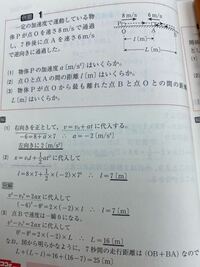 例題 1
一定の加速度で運動している物
体Pが点Oを速さ8m/sで通過
し,7秒後に点Aを速さ6m/s
で左向きに通過した。
8m/s 6m/s
P O A B
l〔m〕
L〔m〕
(1) 物体Pの加速度a〔m/s²〕はいくらか。
(2) 点Oと点Aの間の距離l〔m〕はいくらか。
(3) 物体Pが点Oから最も離れた点Bと点Oとの間の距
L〔m〕はいくらか。
(1) 右向きを正として,v=v₀+atに代入する。
-6=8+a×7 ∴ a=-2〔m/s²〕
左向きに2〔m/s²〕
(2) x=v₀t+1/2at²に代入して
l=8×7+1/2×(-2)×7² ∴ l=7〔m〕
v²-v₀²=2axに代入して
(-6)²-8²=2×(-2)×l ∴ l=7〔m〕
(3) 点Bで速度は一瞬0になる。
v²-v₀²=2axに代入して
0²-8²=2×(-2)×L ∴ L=16〔m〕
なお,図から明らかなように,7秒間の走行距離は(OB+BA)なので
L+(L-l)=16+(16-7)=25〔m〕